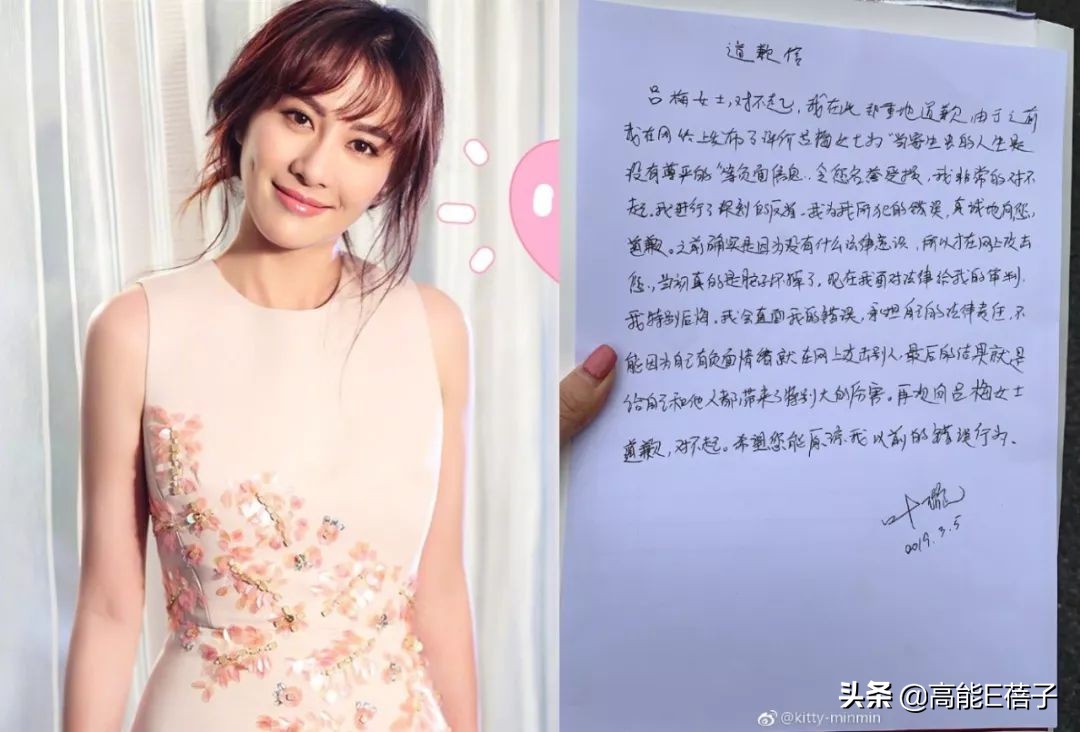 道歉信
吕梅女士,对不起,我在此郑重地道歉,由于之前
我在网络上发布了评价吕梅女士为"当寄生虫的人生是
没有尊严的"等负面信息,令您名誉受损,我非常的对不
起,我进行了深刻的反省。我为我所犯的错误,真诚地向您,
道歉。之前确实是因为没有什么法律意识,所以才在网上攻击
您,当初真的是肚子坏掉了,现在我面对法律给我的审判,
我特别后悔。我会直面我的错误,承担自己的法律责任,不
能因为自己有负面情绪就在网上攻击别人,最后的结果就是
给自己和他人都带来了特别大的伤害。再次向吕梅女士
道歉,对不起。希望您能原谅我以前的错误行为。
叶璇
2019.3.5
@kitty-minmin
头条 @高能E蓓子